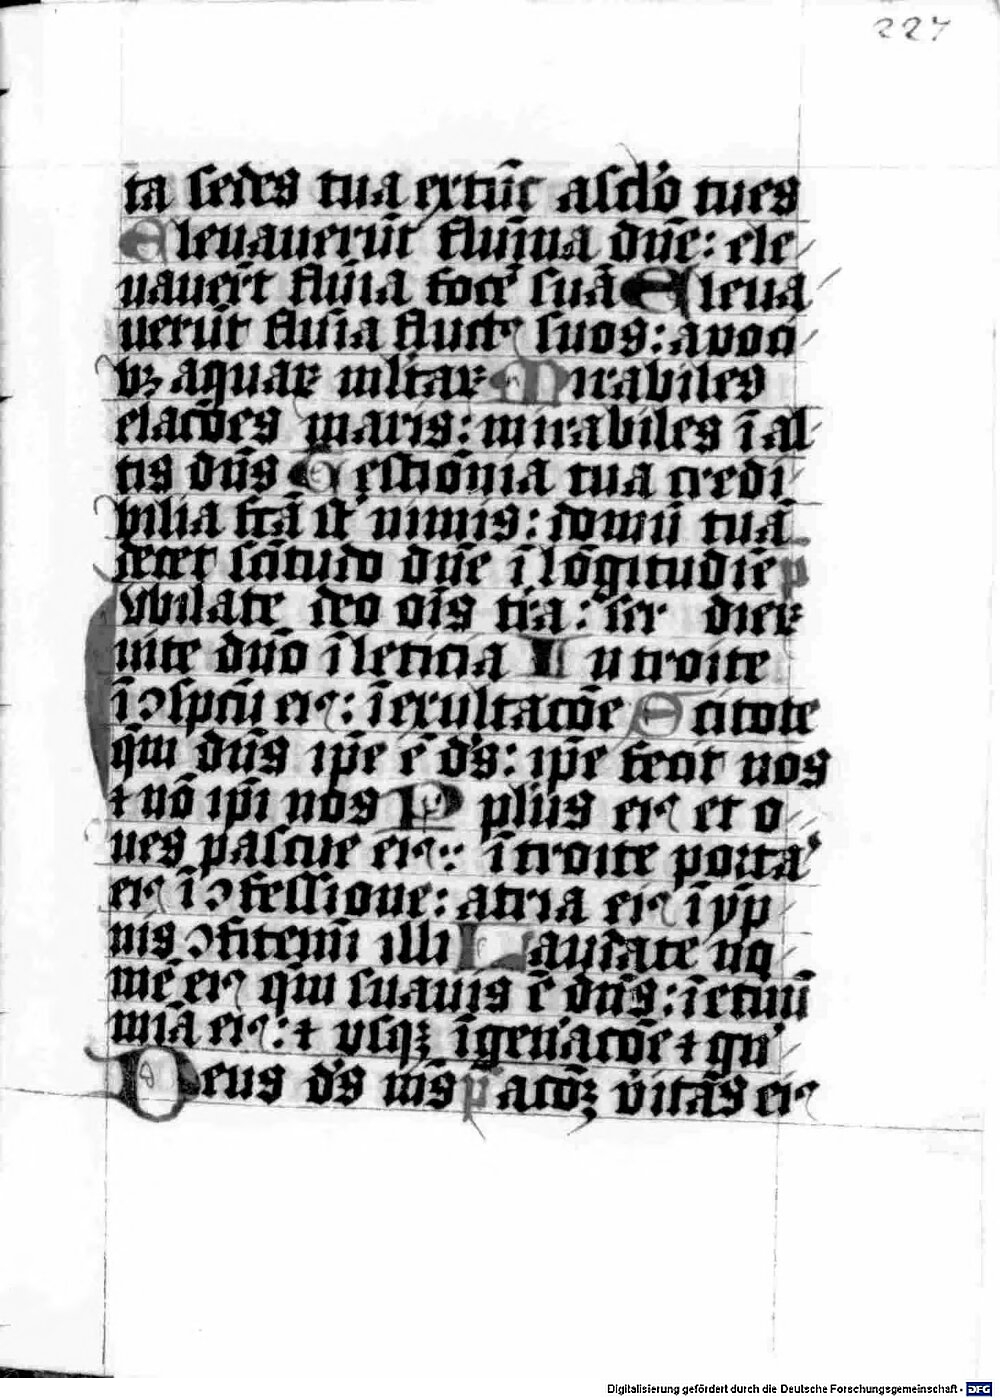 227
ta sedes tua extūc asclo tu es
Eleuauerūt flumīa dn̄e: ele
uauer̄t flūīa voce suā Eleua
uerūt flūīa fluct᷒ suos: a voci
bꝫ aquaꝝ mltaꝝ Mirabiles
elacōes maris: mirabiles ī al
tis dn̄s Testiōnia tua credi
bilia fcā st̄ nimis: domū tuā
decet scītudo dn̄e ī lōgitudīe p
Vbilate deo oīs tr̄a: ser
uite dn̄o ī leticia Introite
ī ↄspcū eiꝰ: ī exultacōe Scitote
qm̄ dn̄s ip̄e ē ds̄: ip̄e fecit nos
⁊ nō ip̄i nos Pplūs eiꝰ et o
ues pascue eiꝰ: ītroite porta᷒
eiꝰ ī ↄfessione: atria eiꝰ ī yp
nis ↄfitemī illi Laudate no
mē eiꝰ qm̄ suauis ē dn̄s: ī etnū
mīa eiꝰ: ⁊ vsqꝫ ī geuacōe ⁊ gn̄
Deus ds̄ ms̄ p acoꝫ v̄itās eiꝰ
Digitalisierung gefördert durch die Deutsche Forschungsgemeinschaft - DFG